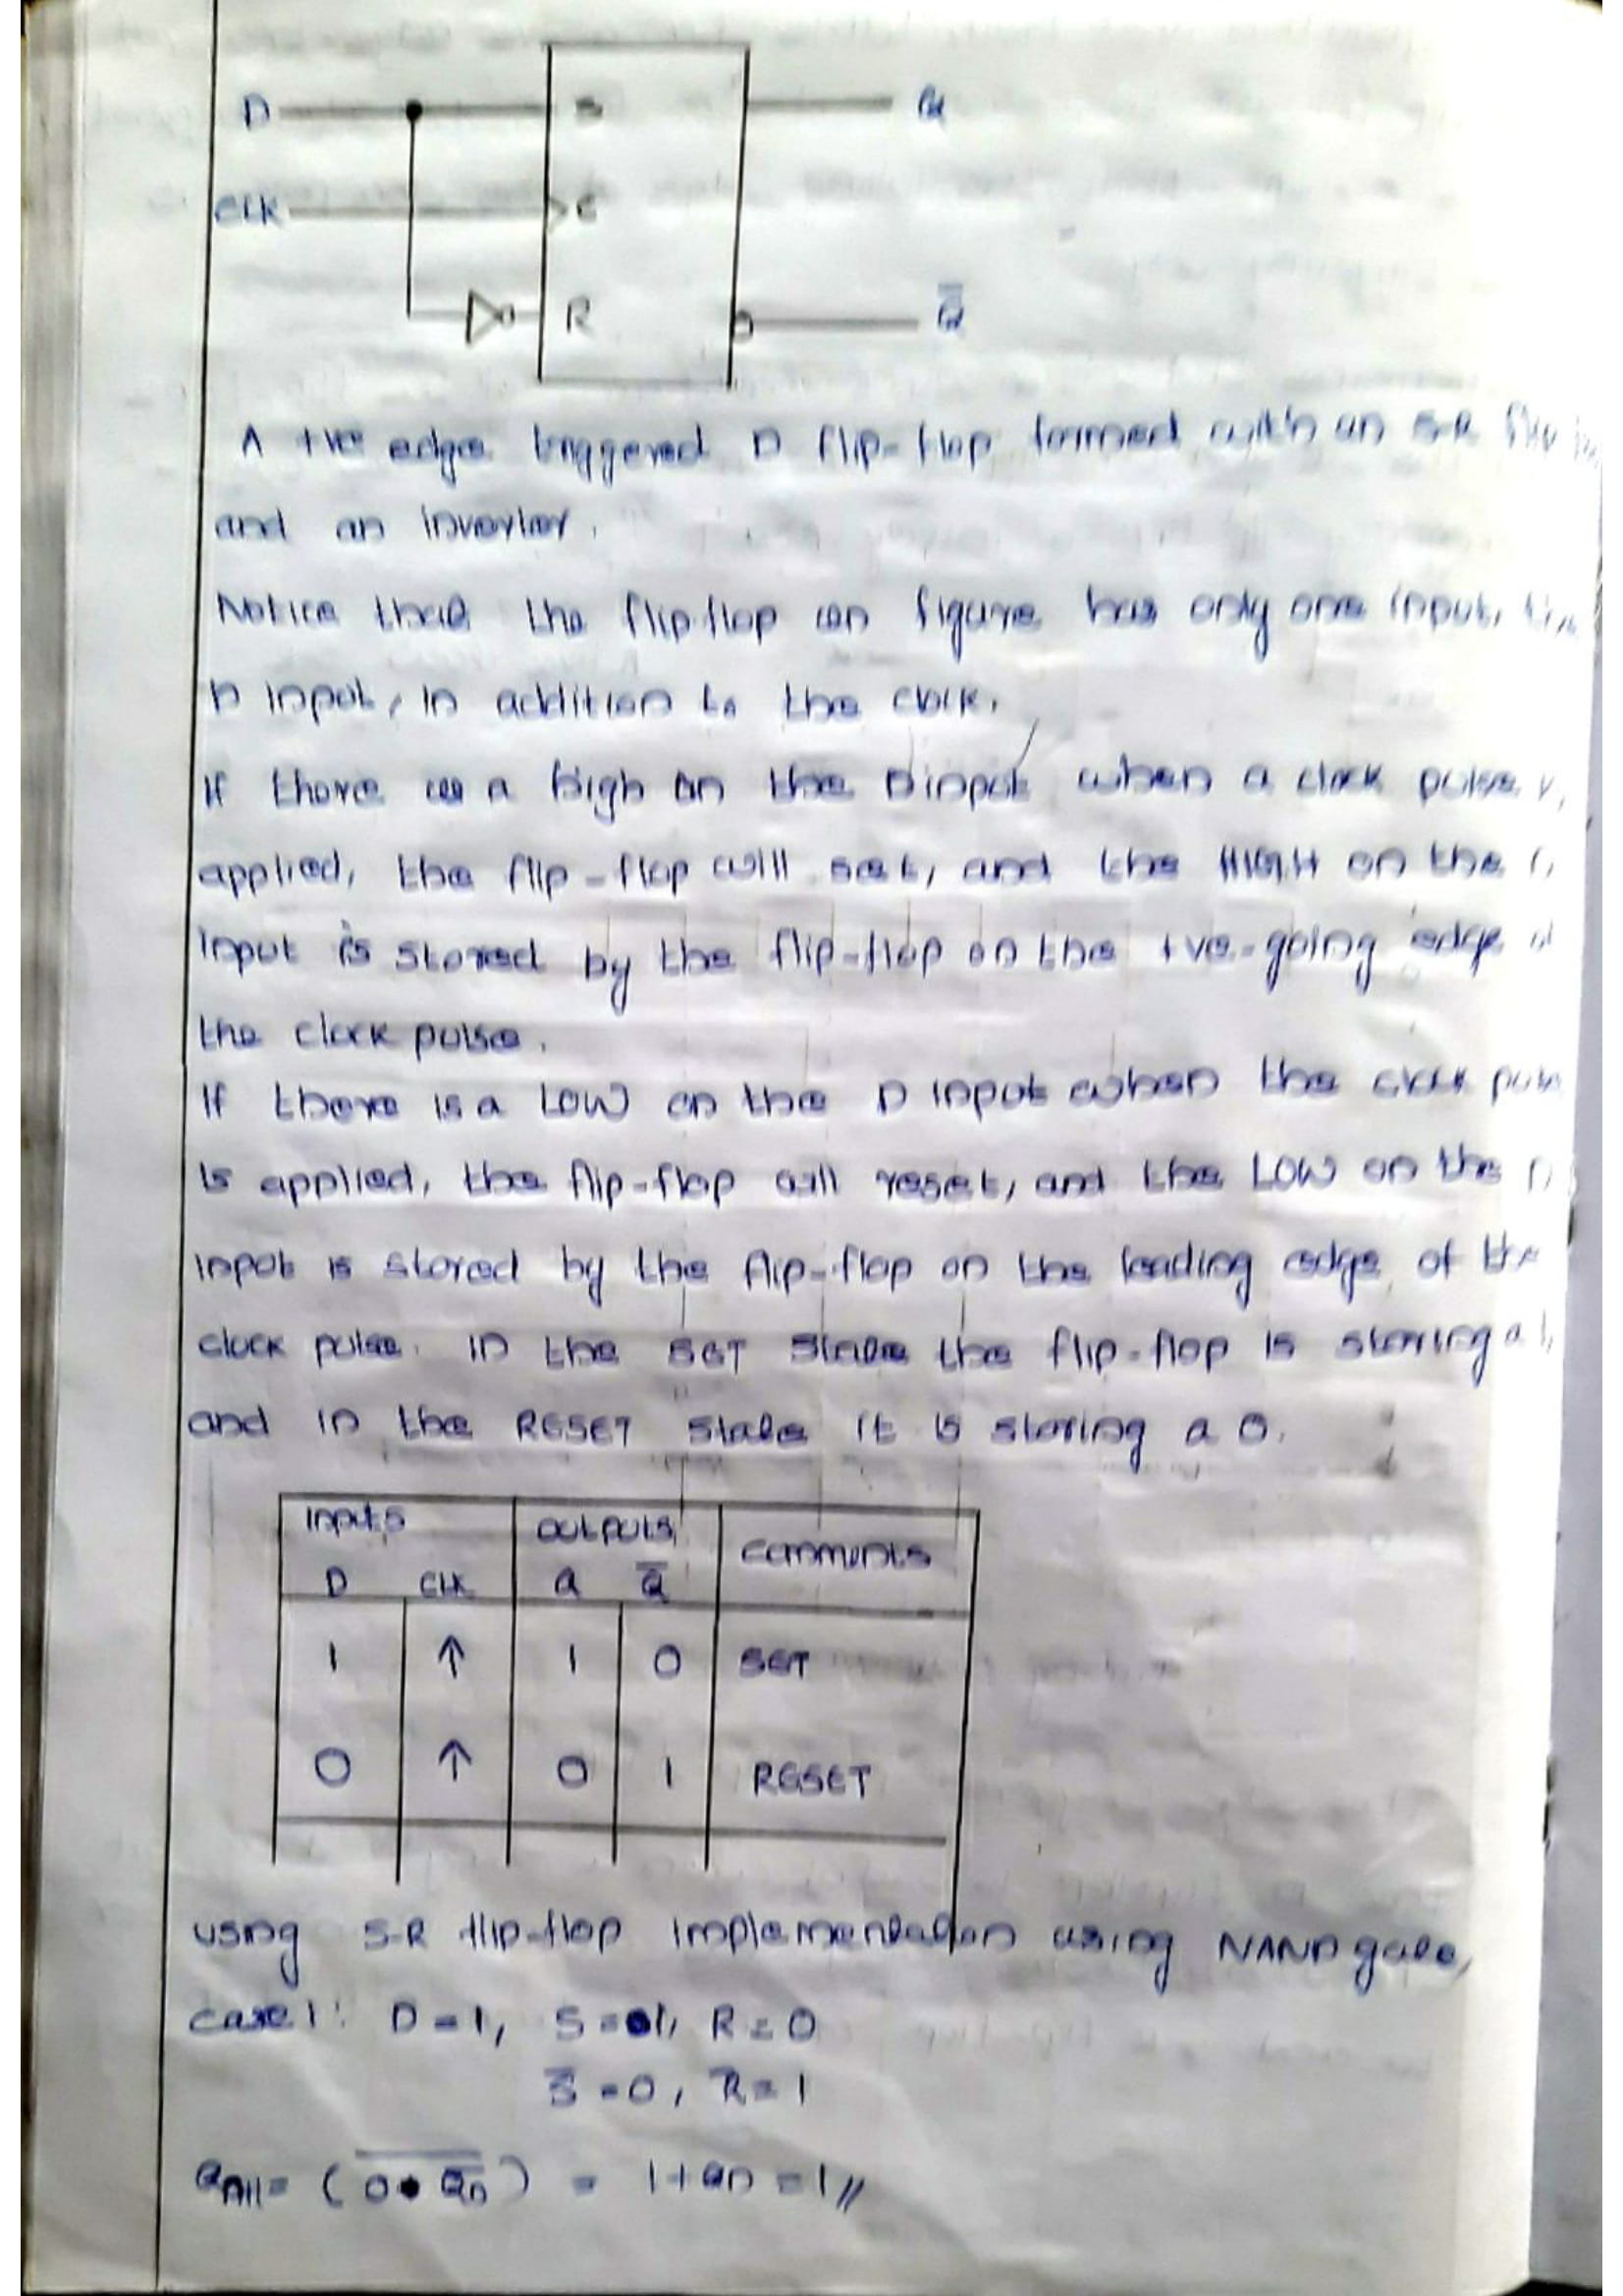 D S Q
CLK C
R Q̅
A +ve edge triggered D flip-flop formed with an S-R
and an invertor.
Notice that the flip flop in figure has only one input, the
D input, in addition to the clock.
If there is a high on the D input when a clock pulse
applied, the flip-flop will set, and the HIGH on the
input is stored by the flip-flop on the +ve-going edge
the clock pulse.
If there is a LOW on the D input when the clock
is applied, the flip-flop will reset, and the LOW on the D
input is stored by the flip-flop on the leading edge of the
clock pulse. In the SET state the flip-flop is storing a 1,
and in the RESET state it is storing a 0.
Inputs outputs comments
D CLK Q Q̅
1 ↑ 1 0 SET
0 ↑ 0 1 RESET
using S-R flip-flop implementation using NAND gate,
case 1: D = 1, S = 1, R = 0
S̅ = 0, R̅ = 1
Qn+1 = (0 • Q̅n)‾ = 1 + Qn = 1 //